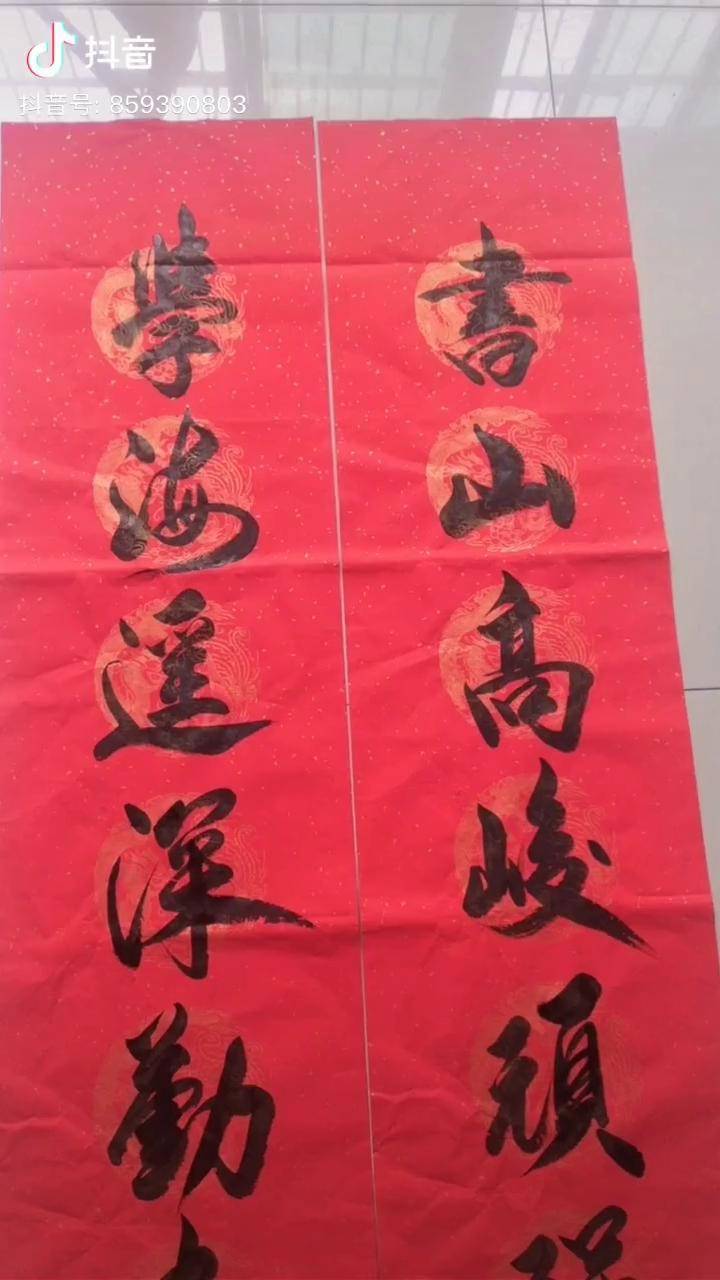 抖音
抖音号: 859390803
書山高峻頑
學海遥深勤